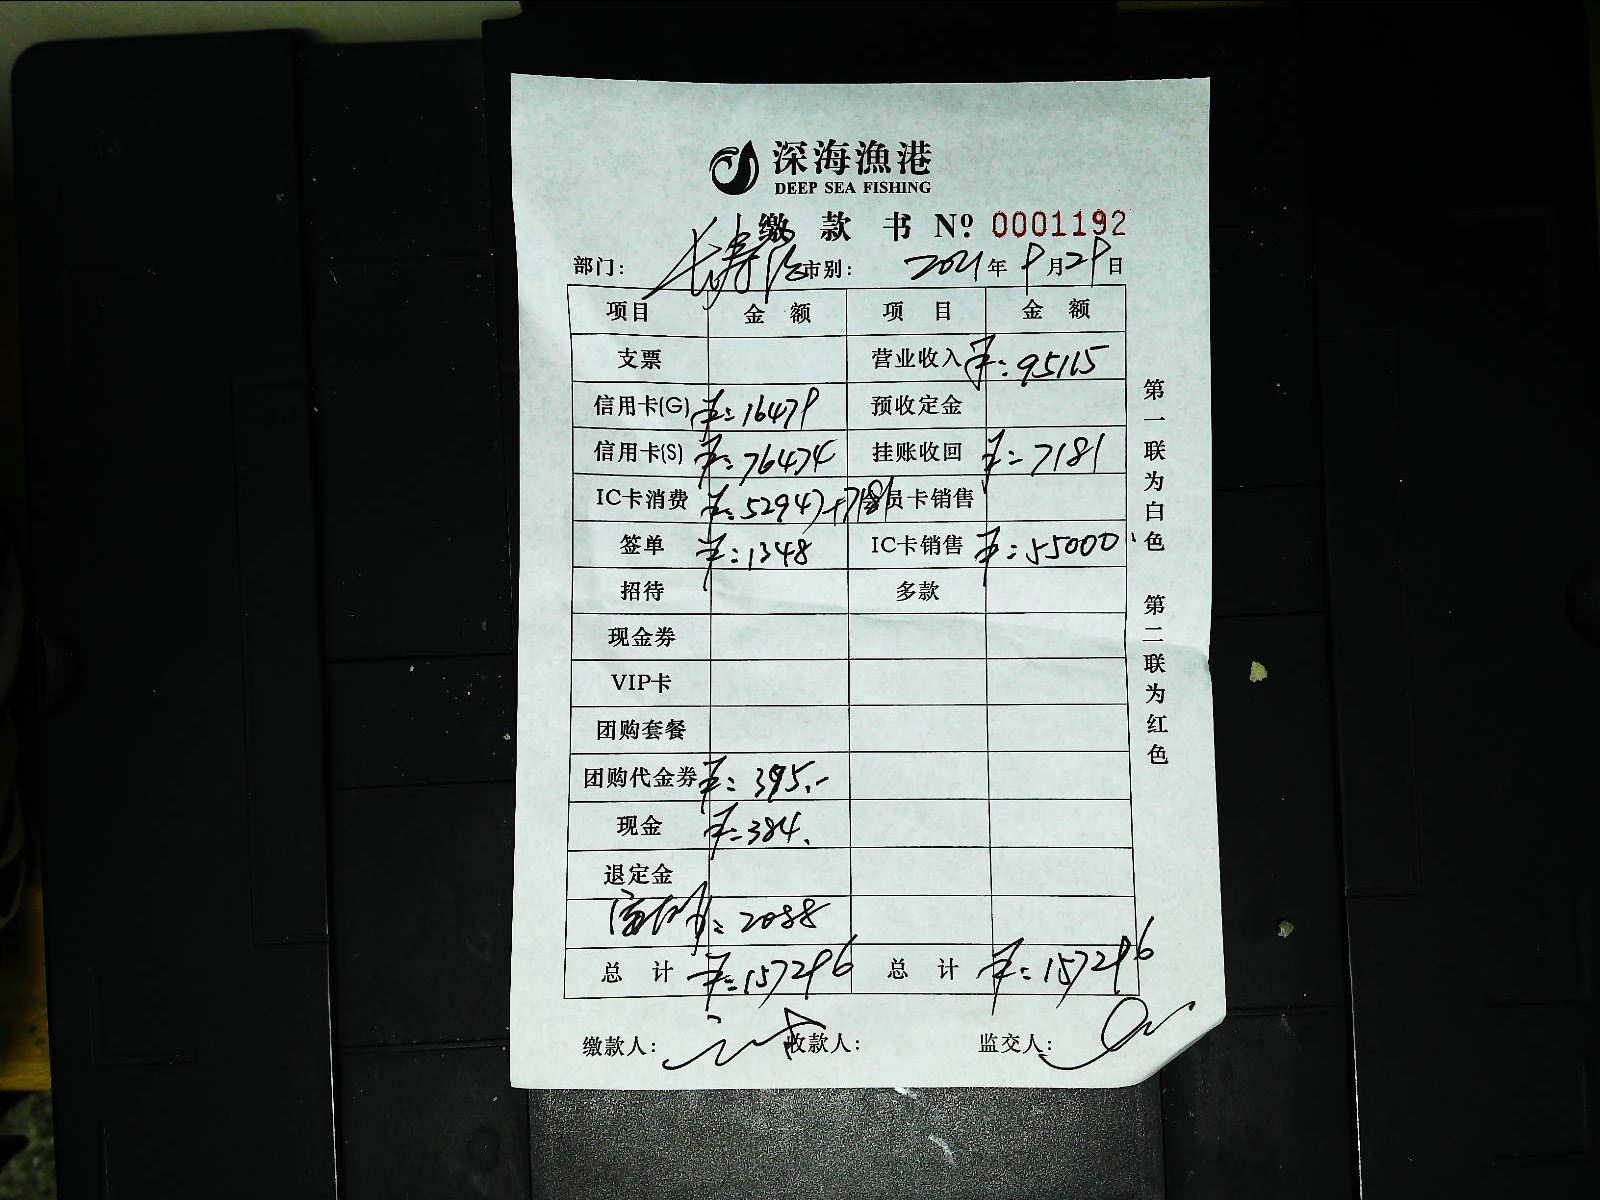 深海漁港
DEEP SEA FISHING
缴款书 Nº: 0001192
部门: 长寿路 市别: 2021年9月29日
项目 金额 项目 金额
支票 营业收入 ¥:95115
信用卡(G) ¥:16479 预收定金
信用卡(S) ¥:76474 挂账收回 ¥:7181
IC卡消费 ¥:52947+7181 会员卡销售
签单 ¥:1348 IC卡销售 ¥:55000
招待 多款
现金券
VIP卡
团购套餐
团购代金券 ¥:395.-
现金 ¥:384.
退定金
¥:2088
总计 ¥:157296 总计 ¥:157296
缴款人: 收款人: 监交人:
第一联为白色 第二联为红色